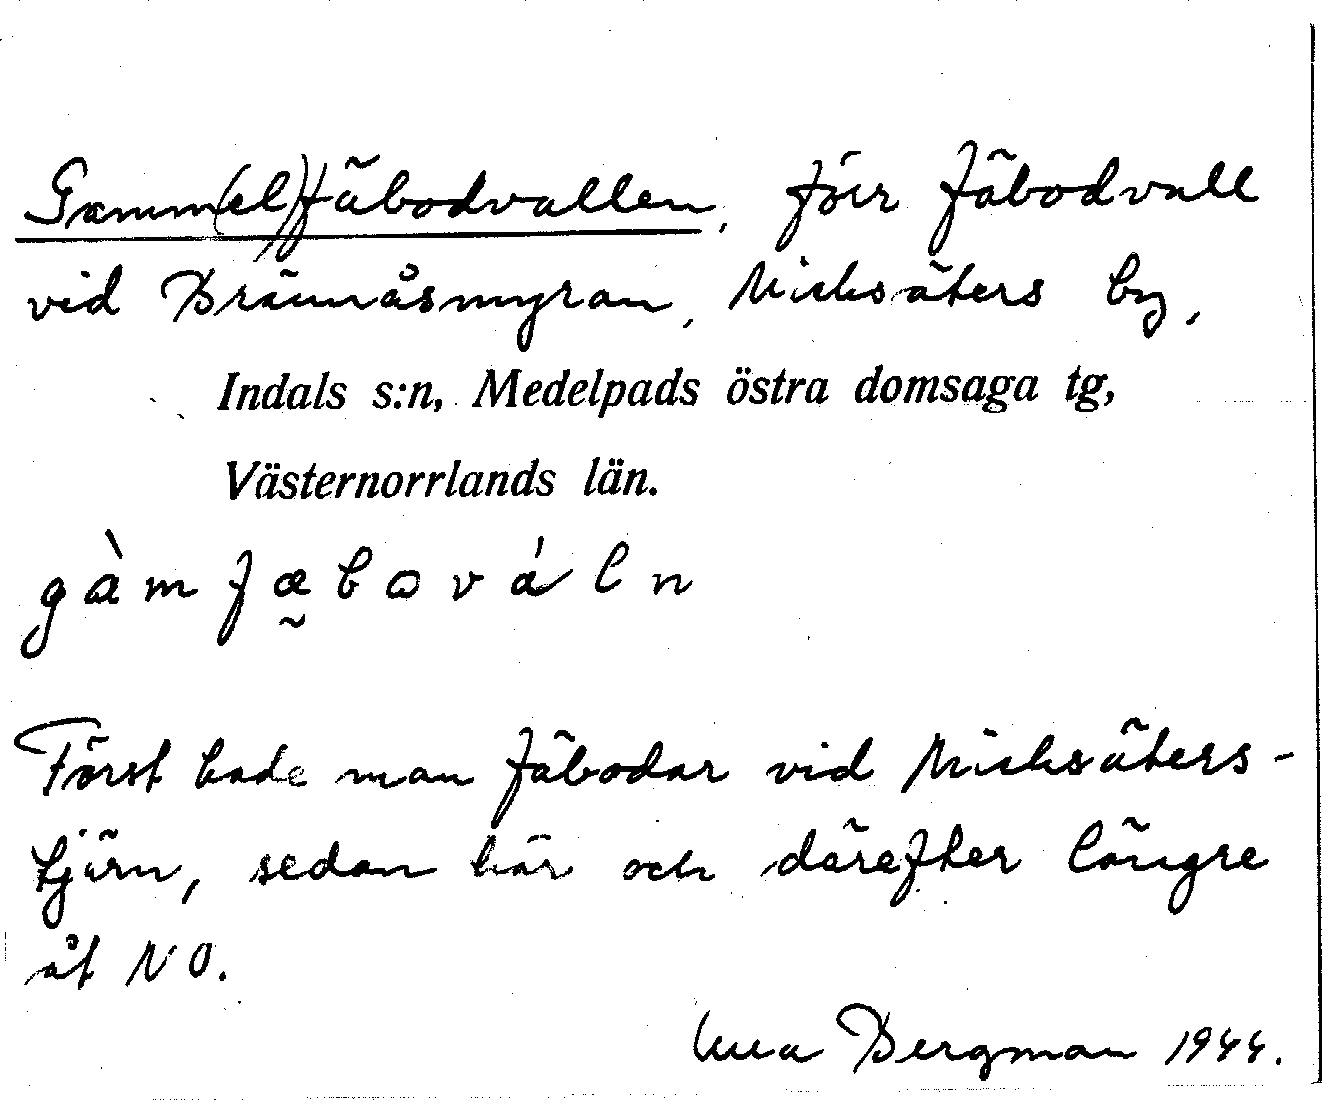 Gamm(el)fäbodvallen, förr fäbodvall
vid Brännåsmyran, Nicksäters by,
Indals s:n, Medelpads östra domsaga tg,
Västernorrlands län.
gàmfæ̰bɷváln
Först hade man fäbodar vid Nicksäters-
tjärn, sedan här och därefter längre
åt NO.
Bergman 1944.